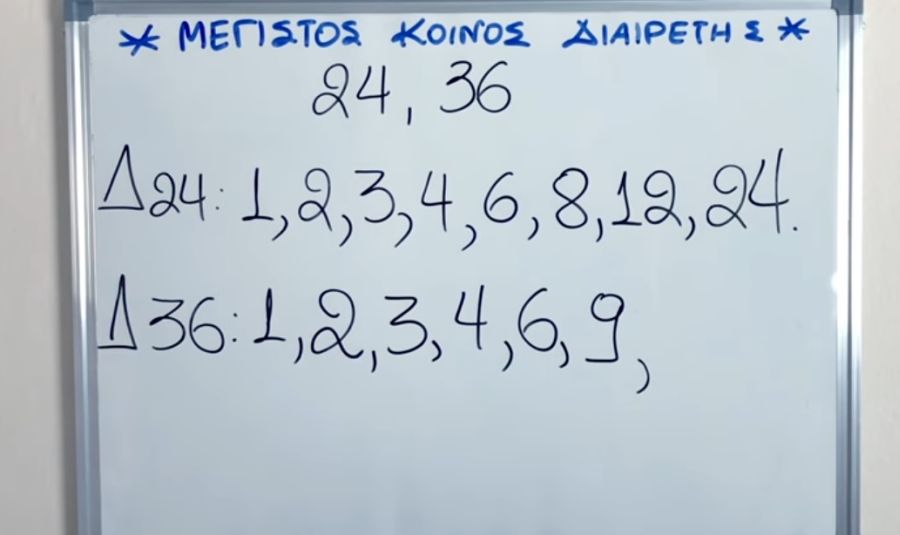 * ΜΕΓΙΣΤΟΣ ΚΟΙΝΟΣ ΔΙΑΙΡΕΤΗΣ *
24, 36
Δ24: 1,2,3,4,6,8,12,24.
Δ36: 1,2,3,4,6,9,